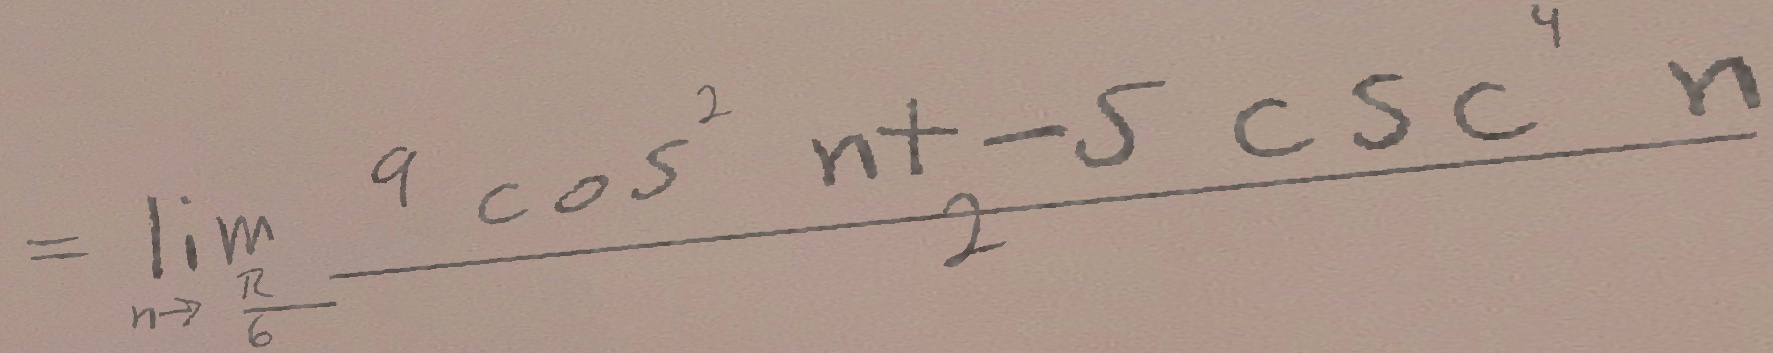 = \lim_{n \to \frac{\pi}{6}} \frac{9 \cos^2 n + -5 \csc^4 n}{2}